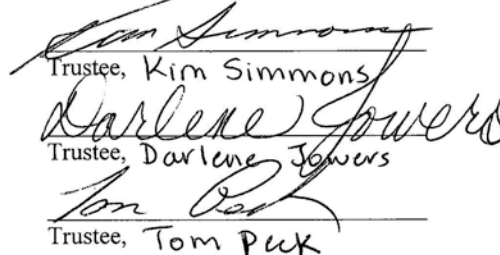 Kim Simmons
Trustee, Kim Simmons
Darlene Jowers
Trustee, Darlene Jowers
Tom Peck
Trustee, Tom Peck